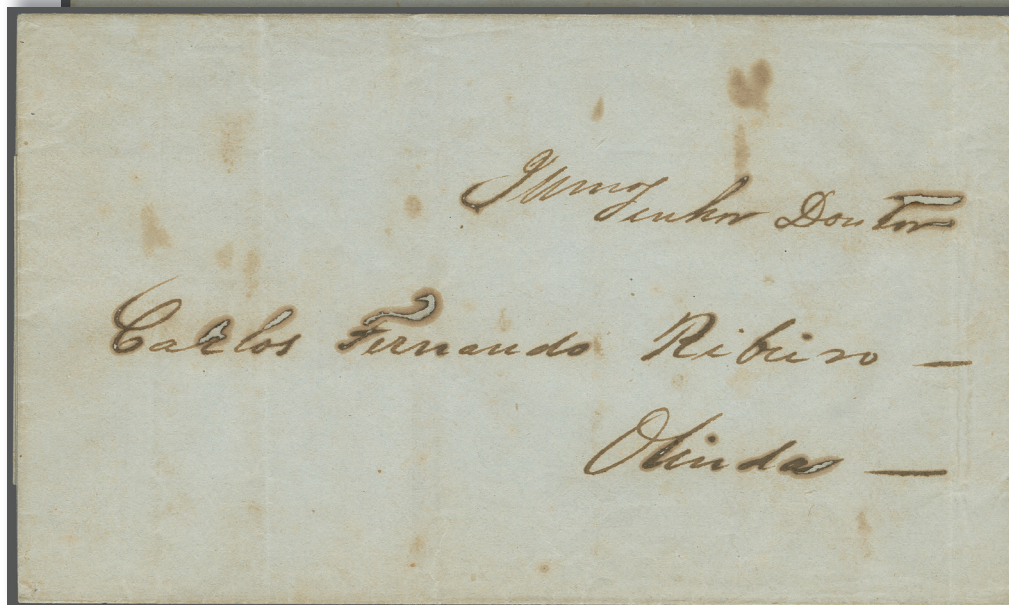 Illmo Senhor Doutor
Carlos Fernando Ribeiro —
Olinda —